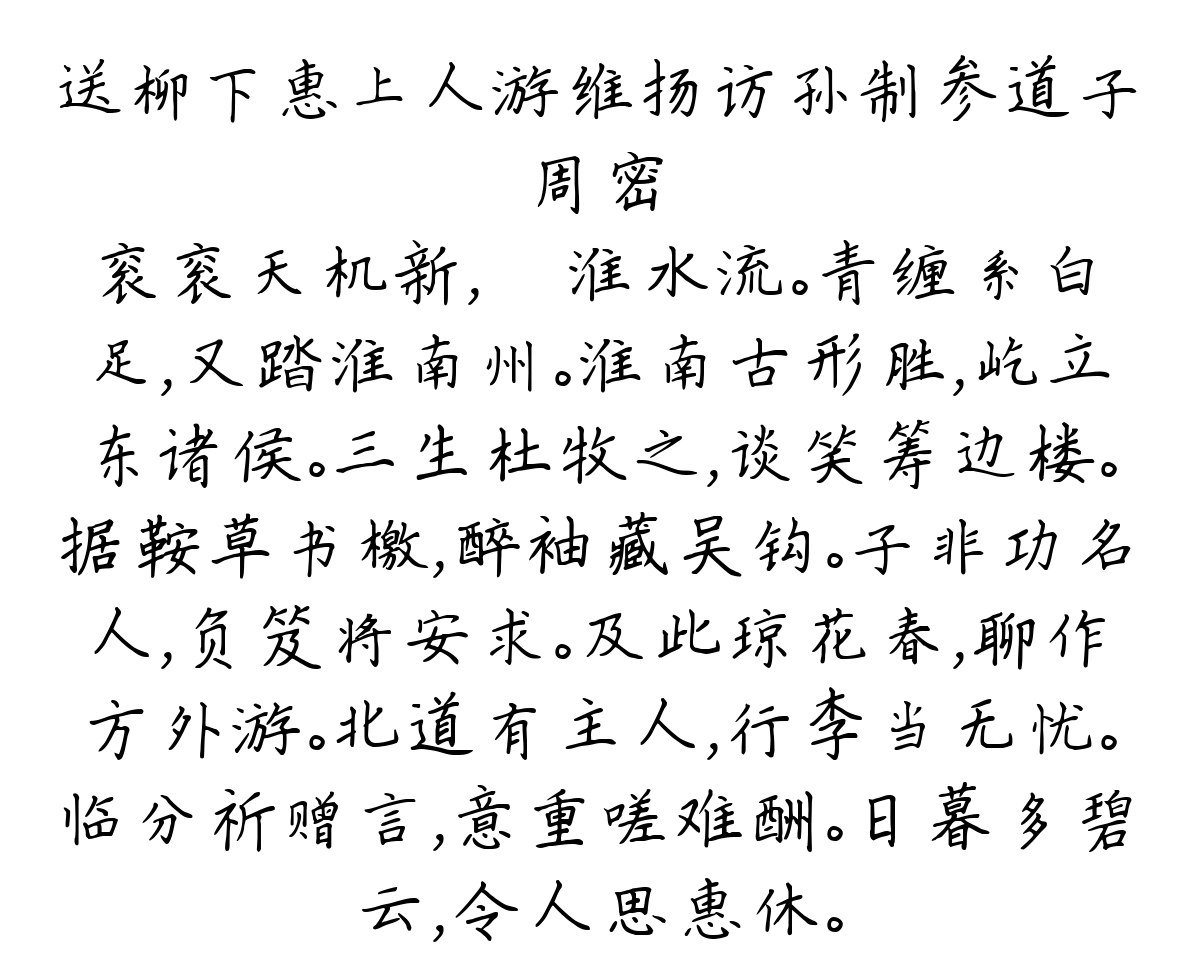 送柳下惠上人游维扬访孙制参道子
周密
衮衮天机新， 淮水流。青缠系白
足，又踏淮南州。淮南古形胜，屹立
东诸侯。三生杜牧之，谈笑筹边楼。
据鞍草书檄，醉袖藏吴钩。子非功名
人，负笈将安求。及此琼花春，聊作
方外游。北道有主人，行李当无忧。
临分祈赠言，意重嗟难酬。日暮多碧
云，令人思惠休。